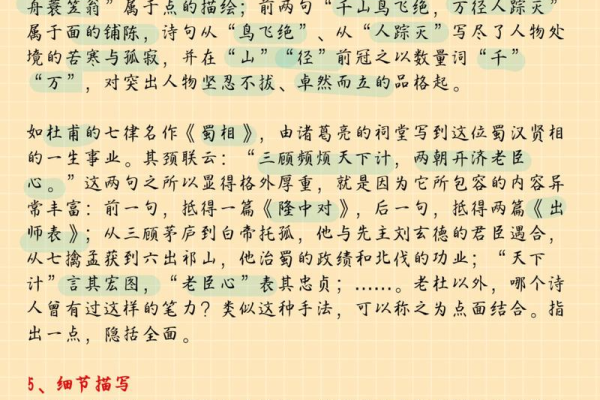 舟蓑笠翁”属于点的描绘；前两句“千山鸟飞绝，万径人踪灭”
属于面的铺陈，诗句从“鸟飞绝”、从“人踪灭”写尽了人物处
境的苦寒与孤寂，并在“山”“径”前冠之以数量词“千”
“万”，对突出人物坚忍不拔、卓然而立的品格起。
如杜甫的七律名作《蜀相》，由诸葛亮的祠堂写到这位蜀汉贤相
的一生事业。其颈联云：“三顾频烦天下计，两朝开济老臣
心。”这两句之所以显得格外厚重，就是因为它所包容的内容异
常丰富：前一句，抵得一篇《隆中对》，后一句，抵得两篇《出
师表》；从三顾茅庐到白帝托孤，他与先主刘玄德的君臣遇合，
从七擒孟获到六出祁山，他治蜀的政绩和北伐的功业；“天下
计”言其宏图，“老臣心”表其忠贞；……。老杜以外，哪个诗
人曾有过这样的笔力？类似这种手法，可以称之为点面结合。指
出一点，隐括全面。
5、细节描写